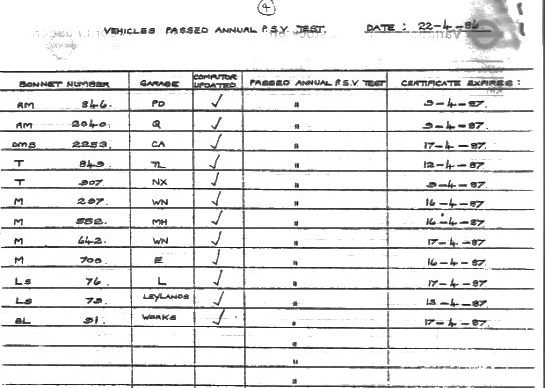 4
VEHICLES PASSED ANNUAL P.S.V. TEST. DATE : 22-4-86
BONNET NUMBER GARAGE COMPUTOR UPDATED PASSED ANNUAL P.S.V. TEST CERTIFICATE EXPIRES :
RM 846. PD ✓ " 9-4-87.
RM 2040. Q ✓ " 9-4-87.
DMS 2253. CA ✓ " 17-4-87.
T 849. TL ✓ " 12-4-87.
T 907. NX ✓ " 9-4-87.
M 297. WN ✓ " 16-4-87
M 552. MH ✓ " 16-4-87.
M 642. WN ✓ " 17-4-87.
M 700. E ✓ " 16-4-87.
LS 76. L ✓ " 17-4-87
LS 79. LEYLANDS ✓ " 13-4-87.
BL 91. WORKS ✓ " 17-4-87.
"
"
"